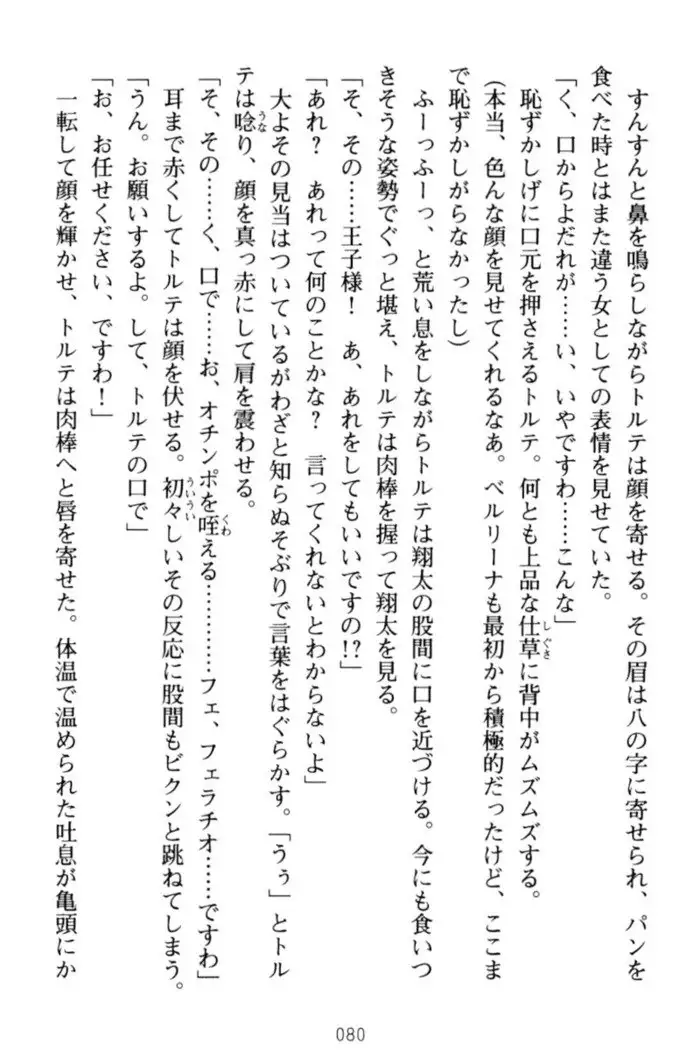 すんすんと鼻を鳴らしながらトルテは顔を寄せる。その眉は八の字に寄せられ、パンを
食べた時とはまた違う女としての表情を見せていた。
「く、口からよだれが……い、いやですわ……こんな」
恥ずかしげに口元を押さえるトルテ。何とも上品な仕草に背中がムズムズする。
(本当、色んな顔を見せてくれるなぁ。ベルリーナも最初から積極的だったけど、ここま
で恥ずかしがらなかったし)
ふーっふーっ、と荒い息をしながらトルテは翔太の股間に口を近づける。今にも食いつ
きそうな姿勢でぐっと堪え、トルテは肉棒を握って翔太を見る。
「そ、その……王子様! あ、あれをしてもいいですの!?」
「あれ? あれって何のことかな? 言ってくれないとわからないよ」
大よその見当はついているがわざと知らぬそぶりで言葉をはぐらかす。「うぅ」とトル
テは唸り、顔を真っ赤にして肩を震わせる。
「そ、その……く、口で……お、オチンポを咥える…………フェ、フェラチオ……ですわ」
耳まで赤くしてトルテは顔を伏せる。初々しいその反応に股間もビクンと跳ねてしまう。
「うん。お願いするよ。して、トルテの口で」
「お、お任せください、ですわ!」
一転して顔を輝かせ、トルテは肉棒へと唇を寄せた。体温で温められた吐息が亀頭にか
080